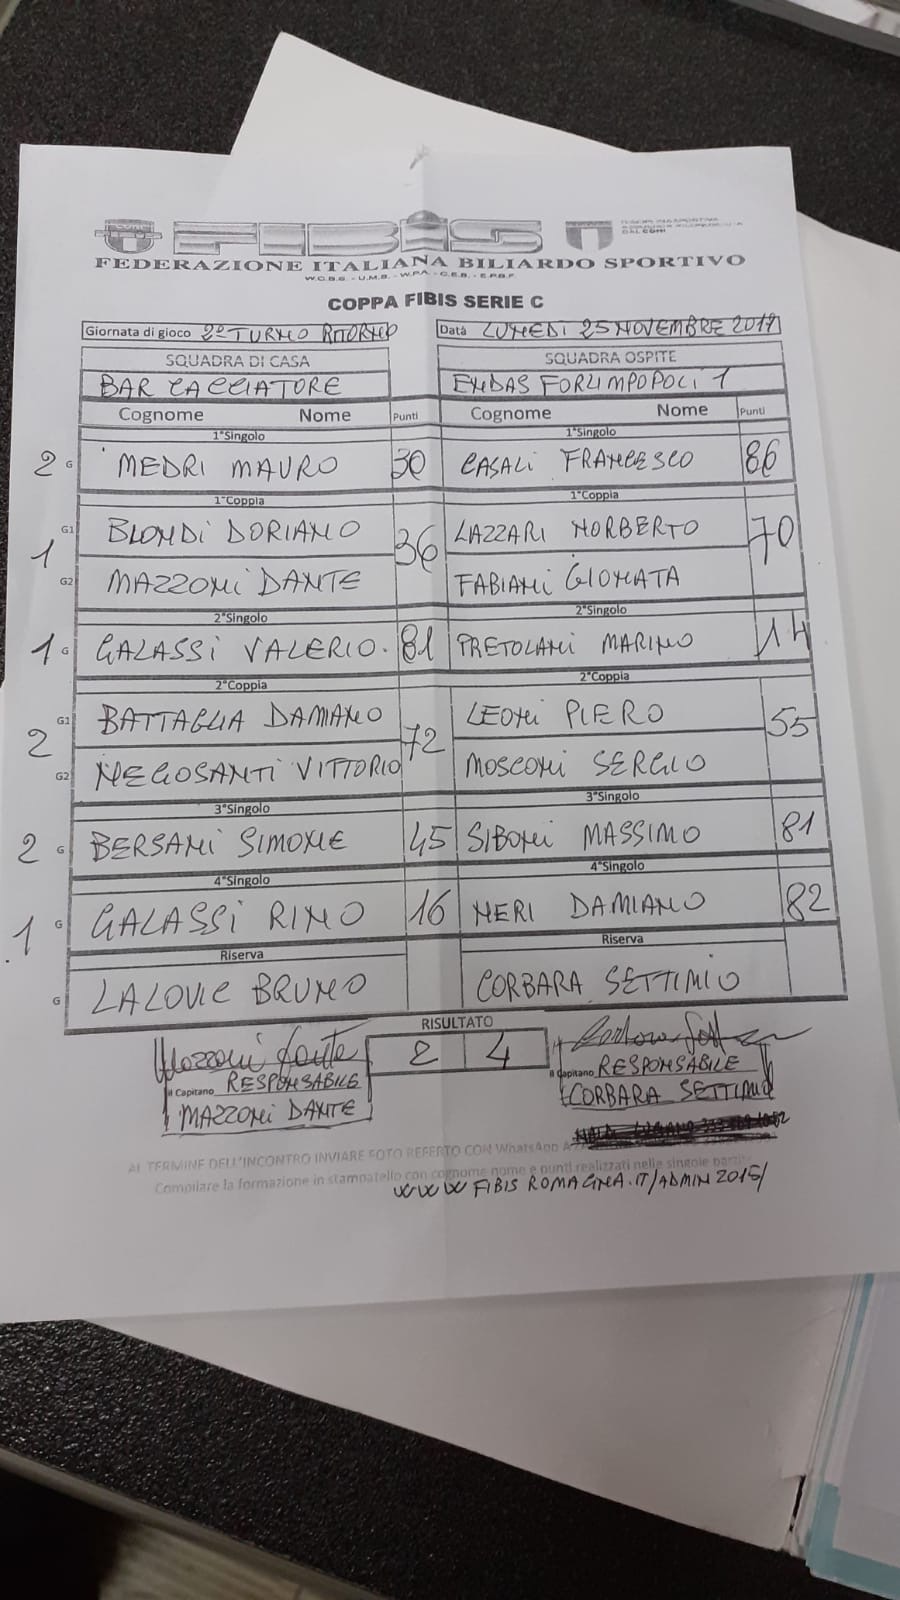 FIBIS
FEDERAZIONE ITALIANA BILIARDO SPORTIVO
W.C.B.S. - U.M.B. - W.P.A. - C.E.B. - E.P.B.F.
COPPA FIBIS SERIE C
Giornata di gioco 2° TURNO RITORNO Data LUNEDI 25 NOVEMBRE 2019
SQUADRA DI CASA SQUADRA OSPITE
BAR CACCIATORE ENDAS FORLIMPOPOLI 1
Cognome Nome Punti Cognome Nome Punti
1°Singolo 1°Singolo
2 G MEDRI MAURO 30 CASALI FRANCESCO 86
1°Coppia 1°Coppia
1 G1 BLONDI DORIANO 36 LAZZARI NORBERTO 70
G2 MAZZONI DANTE FABIANI GIONATA
2°Singolo 2°Singolo
1 G GALASSI VALERIO. 81 PRETOLANI MARINO 14
2°Coppia 2°Coppia
2 G1 BATTAGLIA DAMIANO 72 LEONI PIERO 55
G2 NEGOSANTI VITTORIO MOSCONI SERGIO
3°Singolo 3°Singolo
2 G BERSANI SIMONE 45 SIBONI MASSIMO 81
4°Singolo 4°Singolo
1 G GALASSI RINO 16 NERI DAMIANO 82
Riserva Riserva
G LALOVIC BRUNO CORBARA SETTIMIO
RISULTATO
2 4
Mazzoni Dante
Il Capitano RESPONSABILE Il Capitano RESPONSABILE
MAZZONI DANTE CORBARA SETTIMIO
AL TERMINE DELL'INCONTRO INVIARE FOTO REFERTO CON WhatsApp A
Compilare la formazione in stampatello con cognome nome e punti realizzati nelle singole partite
WWW FIBIS ROMAGNA.IT/ADMIN2015/